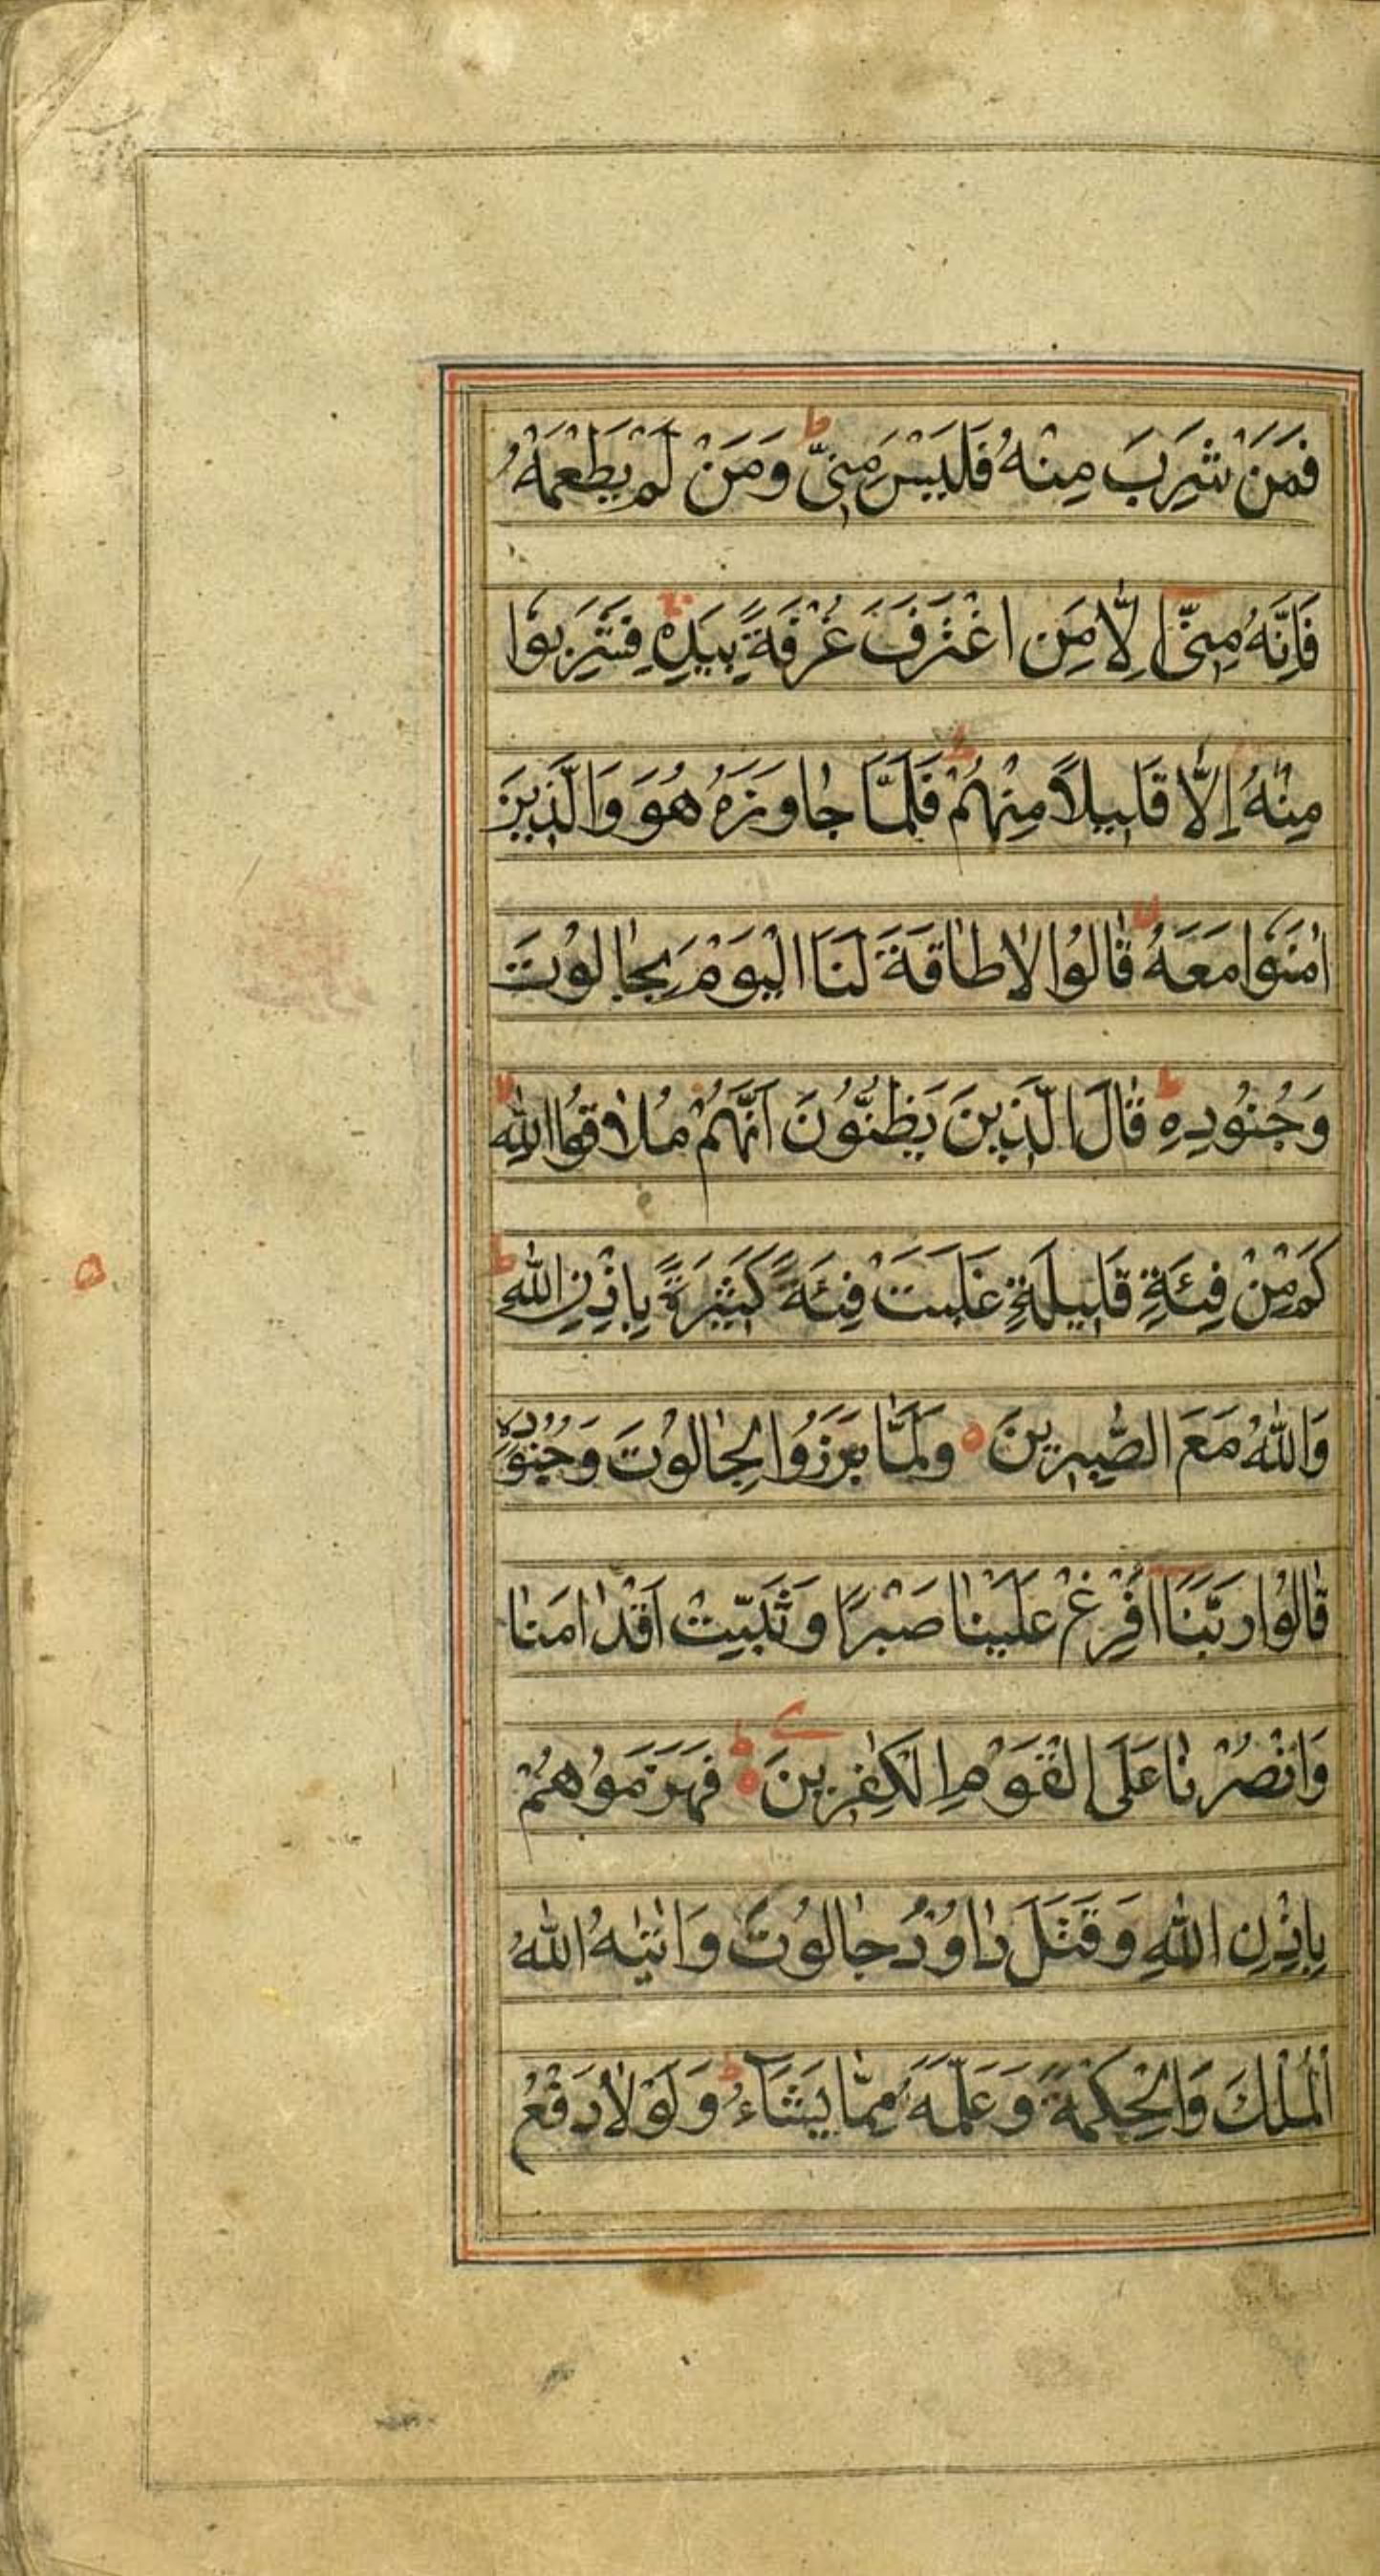 فَمَنْ شَرِبَ مِنْهُ فَلَيْسَ مِنِّي ط وَمَنْ لَمْ يَطْعَمْهُ
فَاِنَّهُ مِنِّي اِلَّا مَنِ اغْتَرَفَ غُرْفَةً بِيَدِهِ فَشَرِبُوا
مِنْهُ اِلَّا قَلِيلًا مِنْهُمْ ط فَلَمَّا جٰاوَزَهُ هُوَ وَالَّذِينَ
اٰمَنُوا مَعَهُ لا قٰالُوا لٰا طٰاقَةَ لَنَا الْيَوْمَ بِجٰالُوتَ
وَجُنُودِهِ ط قٰالَ الَّذِينَ يَظُنُّونَ اَنَّهُمْ مُلٰاقُوا اللّٰهِ لا
كَمْ مِنْ فِئَةٍ قَلِيلَةٍ غَلَبَتْ فِئَةً كَثِيرَةً بِاِذْنِ اللّٰهِ ط
وَاللّٰهُ مَعَ الصّٰبِرِينَ ه وَلَمَّا بَرَزُوا لِجٰالُوتَ وَجُنُودِهِ
قٰالُوا رَبَّنَا اَفْرِغْ عَلَيْنٰا صَبْرًا وَثَبِّتْ اَقْدٰامَنٰا
وَانْصُرْنٰا عَلَى الْقَوْمِ الْكٰفِرِينَ ه ط فَهَزَمُوهُمْ
بِاِذْنِ اللّٰهِ وَقَتَلَ دٰاوُدُ جٰالُوتَ وَاٰتٰيهُ اللّٰهُ
الْمُلْكَ وَالْحِكْمَةَ وَعَلَّمَهُ مِمَّا يَشَآءُ ط وَلَوْلٰا دَفْعُ